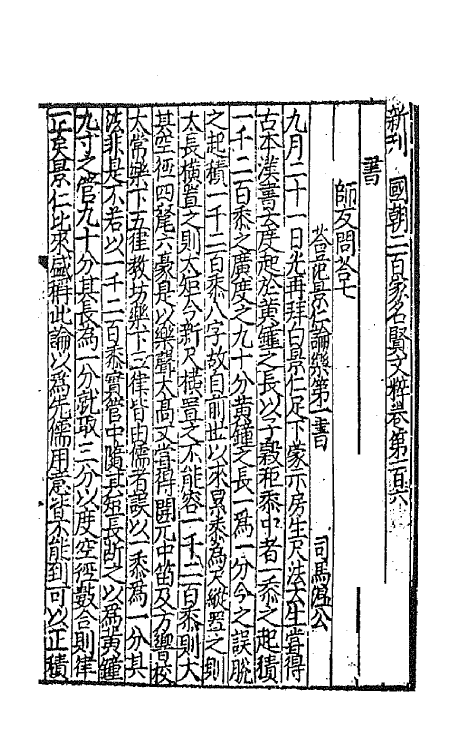 新刊　國朝二百家名賢文粹卷第一百六
書
師友問荅七
荅范景仁論樂第一書　司馬溫公
九月二十一日光再拜白景仁足下蒙示房生尺法云生嘗得
古本漢書云度起於黃鍾之長以子穀秬黍中者一黍之起積
一千二百黍之廣度之九十分黃鍾之長一為一分今之誤脫
之起積一千二百黍八字故自前世以來累黍為尺縱置之則
太長橫置之則太短今新尺橫置之不能容一千二百黍則大
其空徑四氂六毫是以樂聲太高又嘗得開元中笛及方響校
太常樂下五律教坊樂下三律皆由儒者誤以一黍為一分其
法非是不若以一千二百黍實管中隨其短長斷之以為黃鍾
九寸之管九十分其長為一分就取三分以度空徑數合則律
正矣景仁比來盛稱此論以為先儒用意皆不能到可以正積